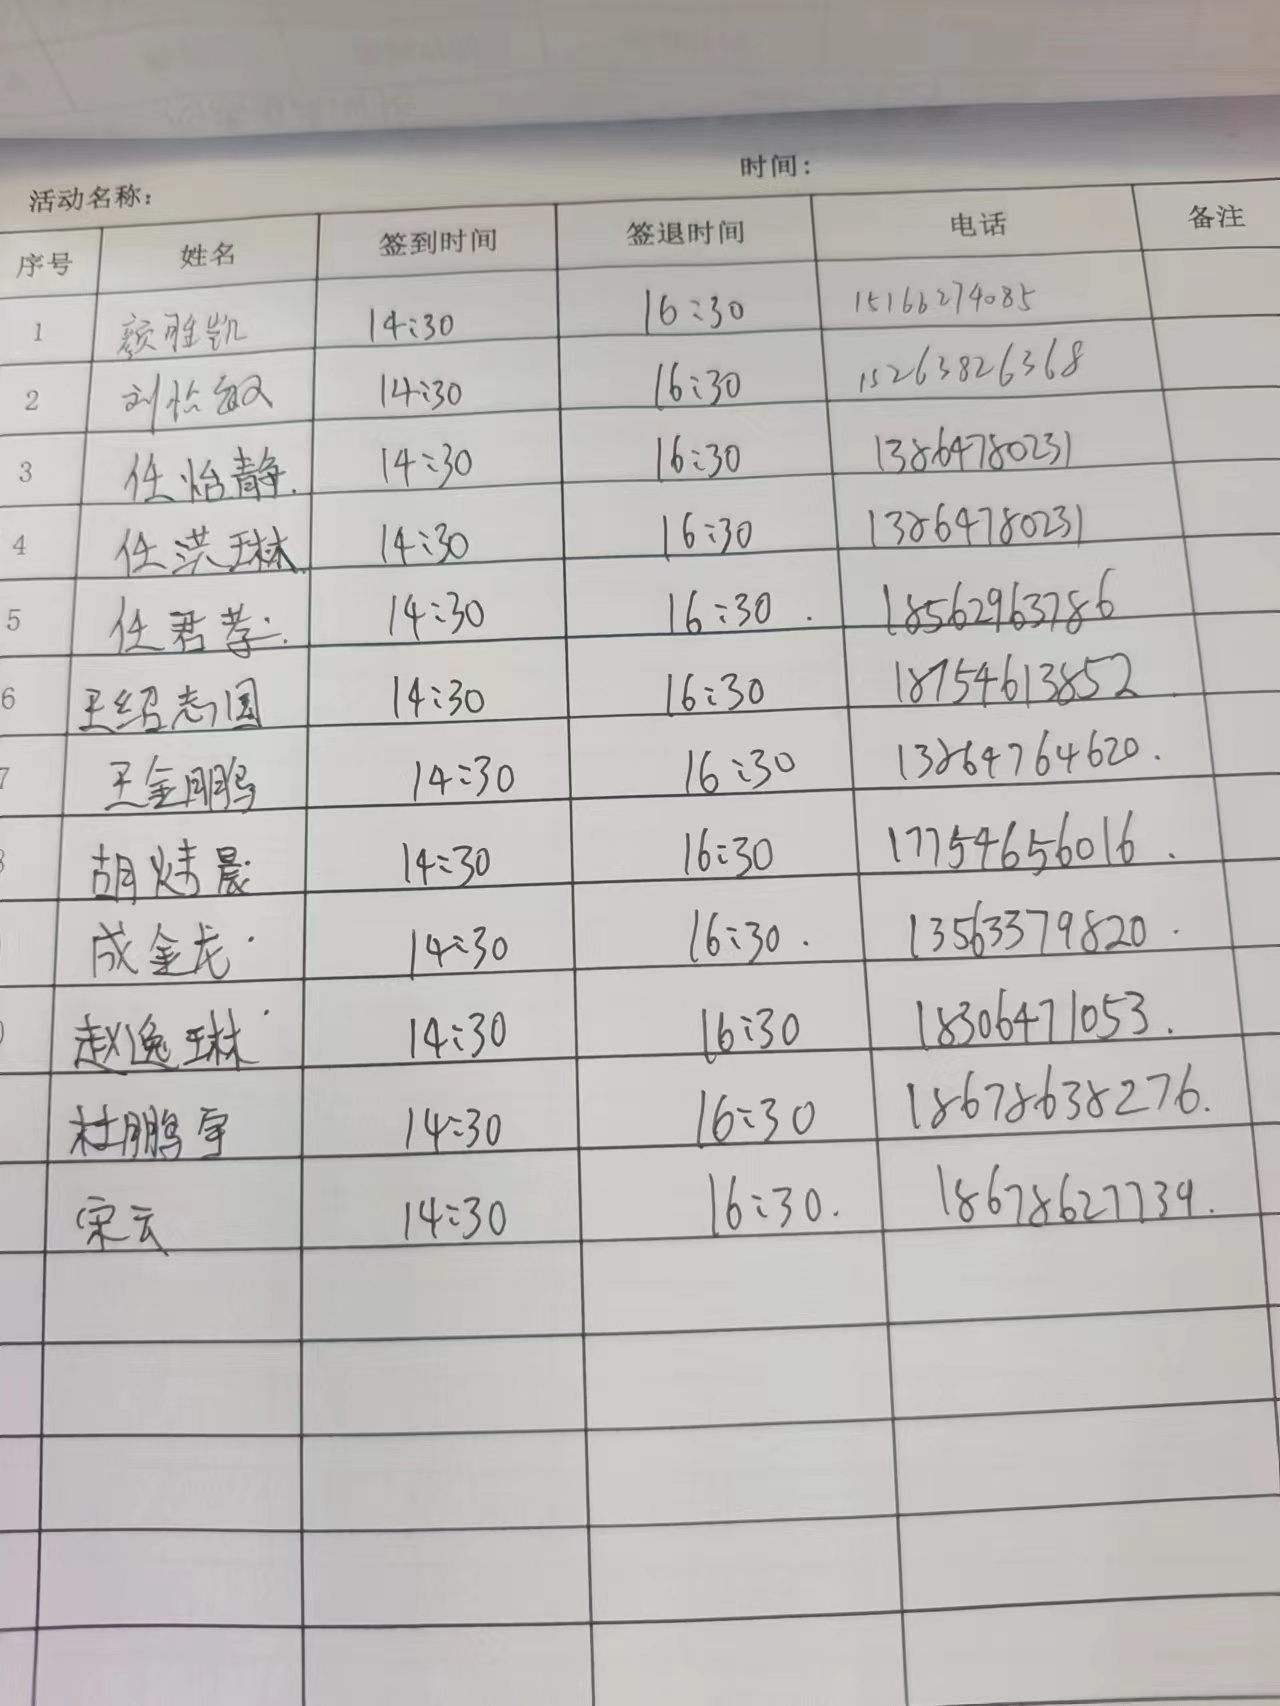 时间:
活动名称:
序号 姓名 签到时间 签退时间 电话 备注
1 颜胜凯 14:30 16:30 15166274085
2 刘怡敏 14:30 16:30 15263826368
3 任怡静. 14:30 16:30 13864780231
4 任洪琳 14:30 16:30 13864780231
5 任君孝. 14:30 16:30. 18562963786
6 王绍志圆 14:30 16:30 18754613852
7 王金鹏 14:30 16:30 13864764620.
胡炜晨 14:30 16:30 17754656016.
成金龙. 14:30 16:30. 13563379820.
赵逸琳 14:30 16:30 18306471053.
杜鹏宇 14:30 16:30 18678638276.
宋云 14:30 16:30. 18678627739.